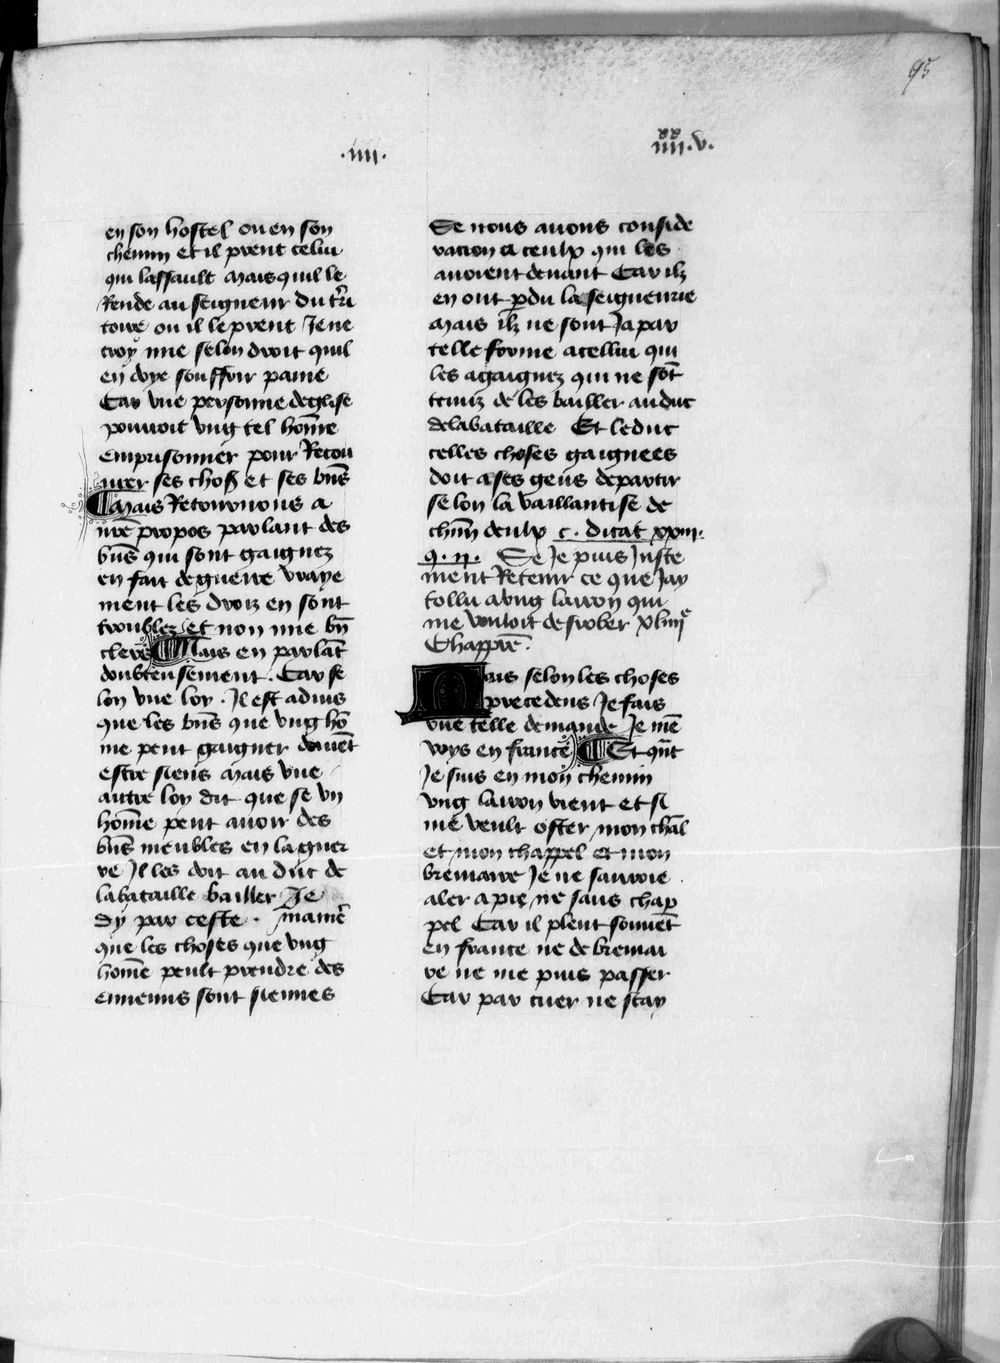 95
.iiii.
iiii.xx v.
en son hostel ou en son
chemin et il prent celui
qui lassault mais quil le
Rende au seigneur du t'ri
toire ou il le prent Je ne
croy mie selon droit quil
en doye souffrir paine
Car vne personne deglise
pouuoit vng tel hom̄e
emprisonner pour Recou
urer ses choses et ses bn̄s
¶ Mais Retournons a
nr̄e propos parlant des
bn̄s qui sont gaignez
en fait de guerre vraye
ment les droiz en sont
troublez et non mie bn̄
clers ¶ Mais en parlāt
doubteusement. Car se
lon vne loy. Il est aduis
que les bn̄s que vng hō
me peut gaigner doiuēt
estre siens mais vne
autre loy dit que se vn
hom̄e peut auoir des
bn̄s meubles en la guer
re Il les doit au duc de
la bataille bailler Je
dy par ceste maniē
que les choses que vng
hom̄e peult prendre des
ennemis sont siennes
Se nous auons conside
racion a ceulx qui les
auoient deuant Car ilz
en ont p̱du la seigneurie
Mais ilz ne sont Ja par
telle forme a cellui qui
les a gaignez qui ne sōt
tenuz de les bailler au duc
de la bataille Et le duc
celles choses gaignees
doit a ses gens departir
selon la vaillantise de
chūn deulx c. dicat xxiii.
q. ii. Se Je puis Juste
ment Retenir ce que Jay
tollu a vng larron qui
me vouloit desrober xliiije
Chappr̄e.
Mais selon les choses
precedens Je fais
vne telle demande Je mē
voys en france ¶ Et qn̄t
Je suis en mon chemin
vng larron vient et si
me veult oster mon ch̄al
et mon chappel et mon
breuiaire Je ne sauroie
aler a pie ne sans chap
pel Car il pleut souuēt
en france ne de breuiai
re ne me puis passer
Car par cuer ne scay